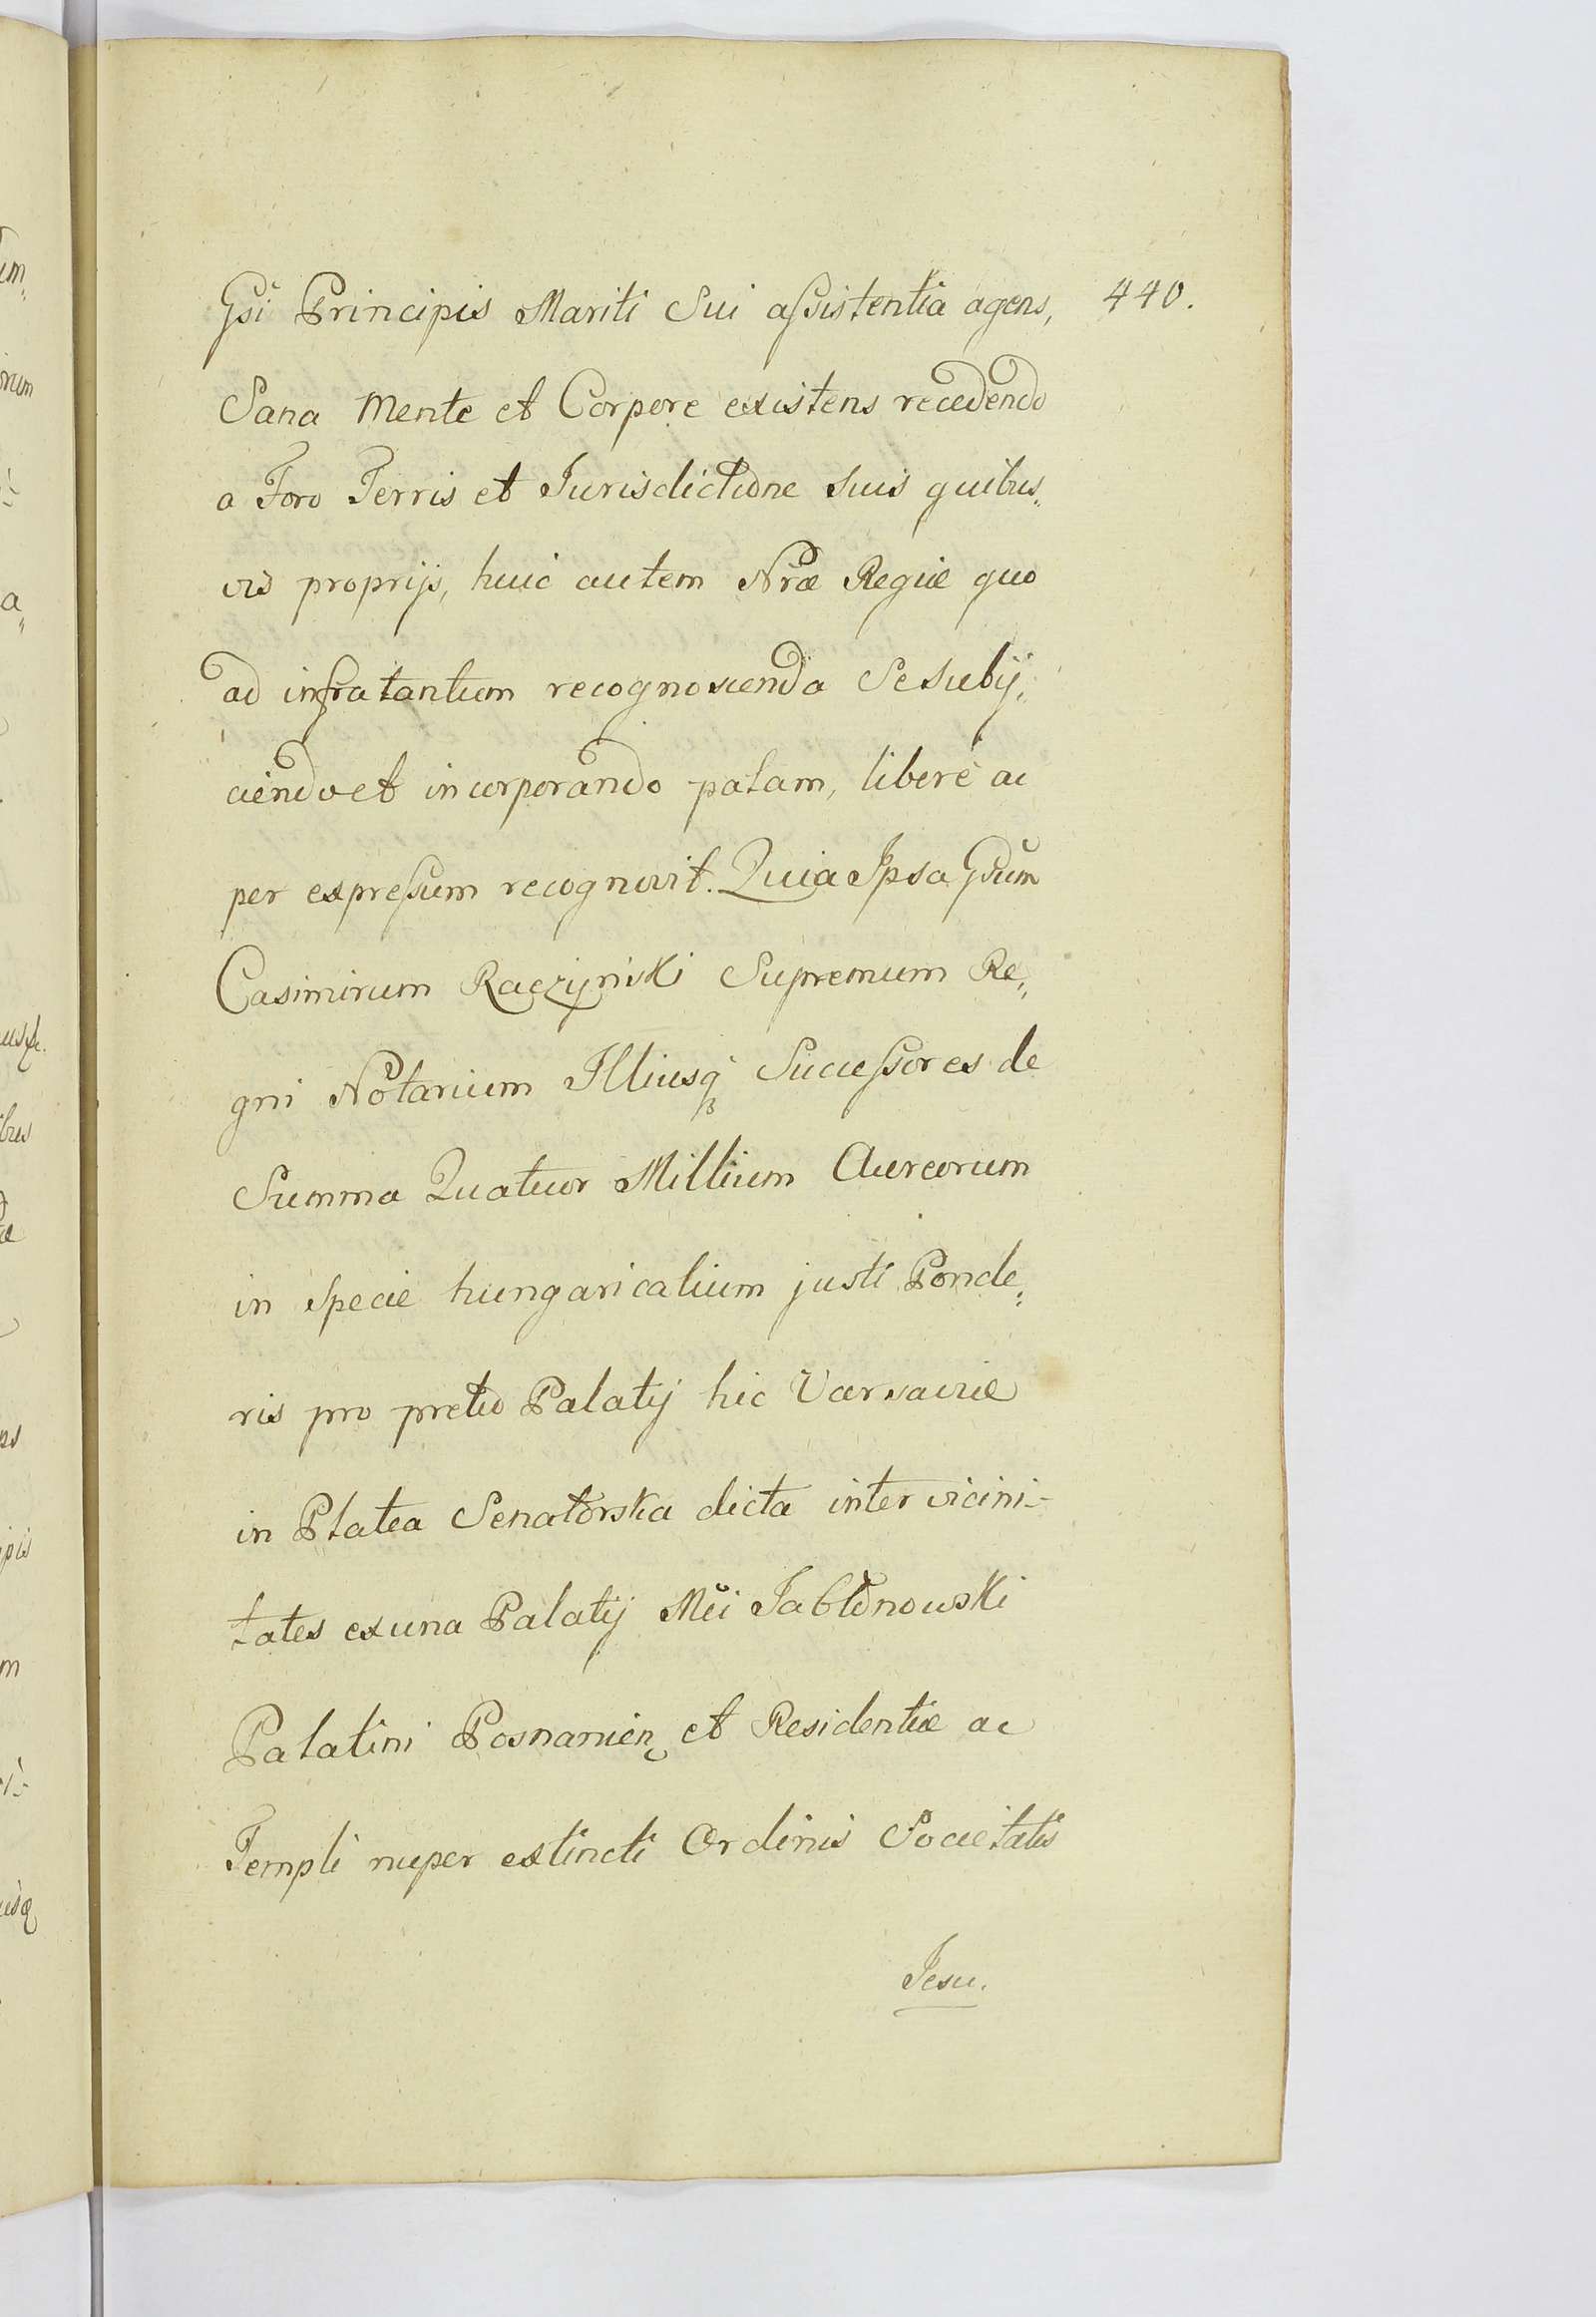 Gsi Principis Mariti Sui assistentia agens, 440.
Sana Mente et Corpore existens recedendo
a Foro Terris et Jurisdictione suis quibus„
vis proprijs, huic autem Nræ Regiæ quo
ad infra tantum recognoscenda Se subij„
ciendo et incorporando palam, liberè ac
per expressum recognovit. Quia Ipsa Gsum
Casimirum Raczyński Supremum Re„
gni Notarium Illiusq Successores de
Summa Quatuor Millium Aureorum
in specie hungaricalium justi Ponde„
ris pro pretio Palatij hic Varsaviæ
in Platea Senatorska dicta inter vicini-
tates ex una Palatij Mci Jabłonowski
Palatini Posnanien et Residentiæ ac
Templi nuper extincti Ordinis Societatis
Jesu.